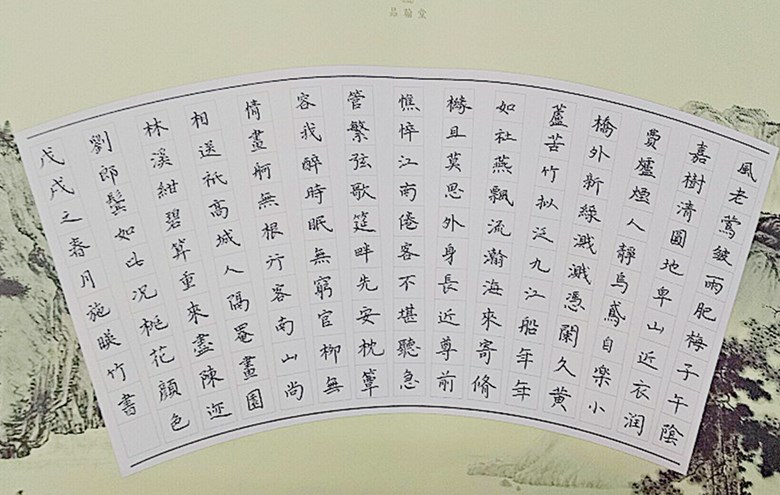 品翰堂
風老鶯雛雨肥梅子午陰
嘉樹清圓地卑山近衣潤
費爐煙人靜烏鳶自樂小
橋外新綠濺濺憑闌久黃
蘆苦竹擬泛九江船年年
如社燕飄流瀚海來寄脩
椽且莫思外身長近尊前
憔悴江南倦客不堪聽急
管繁弦歌筵畔先安枕簟
容我醉時眠無窮官柳無
情畫舸無根行客南山尚
相送祇高城人隔罨畫園
林溪紺碧算重來盡陳迹
劉郎鬢如此況桃花顏色
戊戌之春月施暎竹書